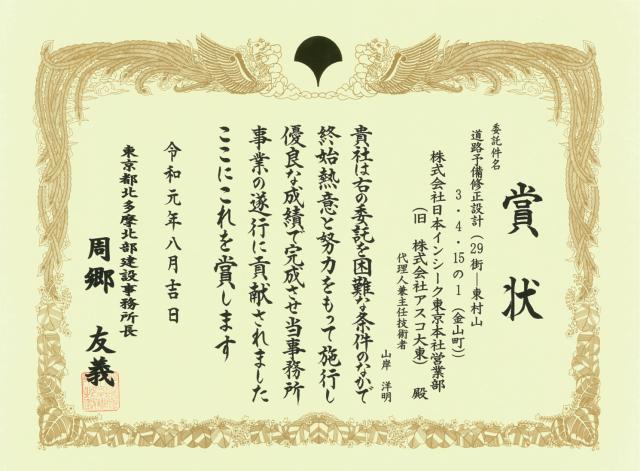 賞状
委託件名
道路予備修正設計（29街―東村山
3・4・15の1（金山町））
株式会社日本インシーク東京本社営業部
（旧　株式会社アスコ大東）　殿
代理人兼主任技術者
山岸　洋明
貴社は右の委託を困難な条件のなかで
終始熱意と努力をもって施行し
優良な成績で完成させ当事務所
事業の遂行に貢献されました
ここにこれを賞します
令和元年八月吉日
東京都北多摩北部建設事務所長
周郷　友義